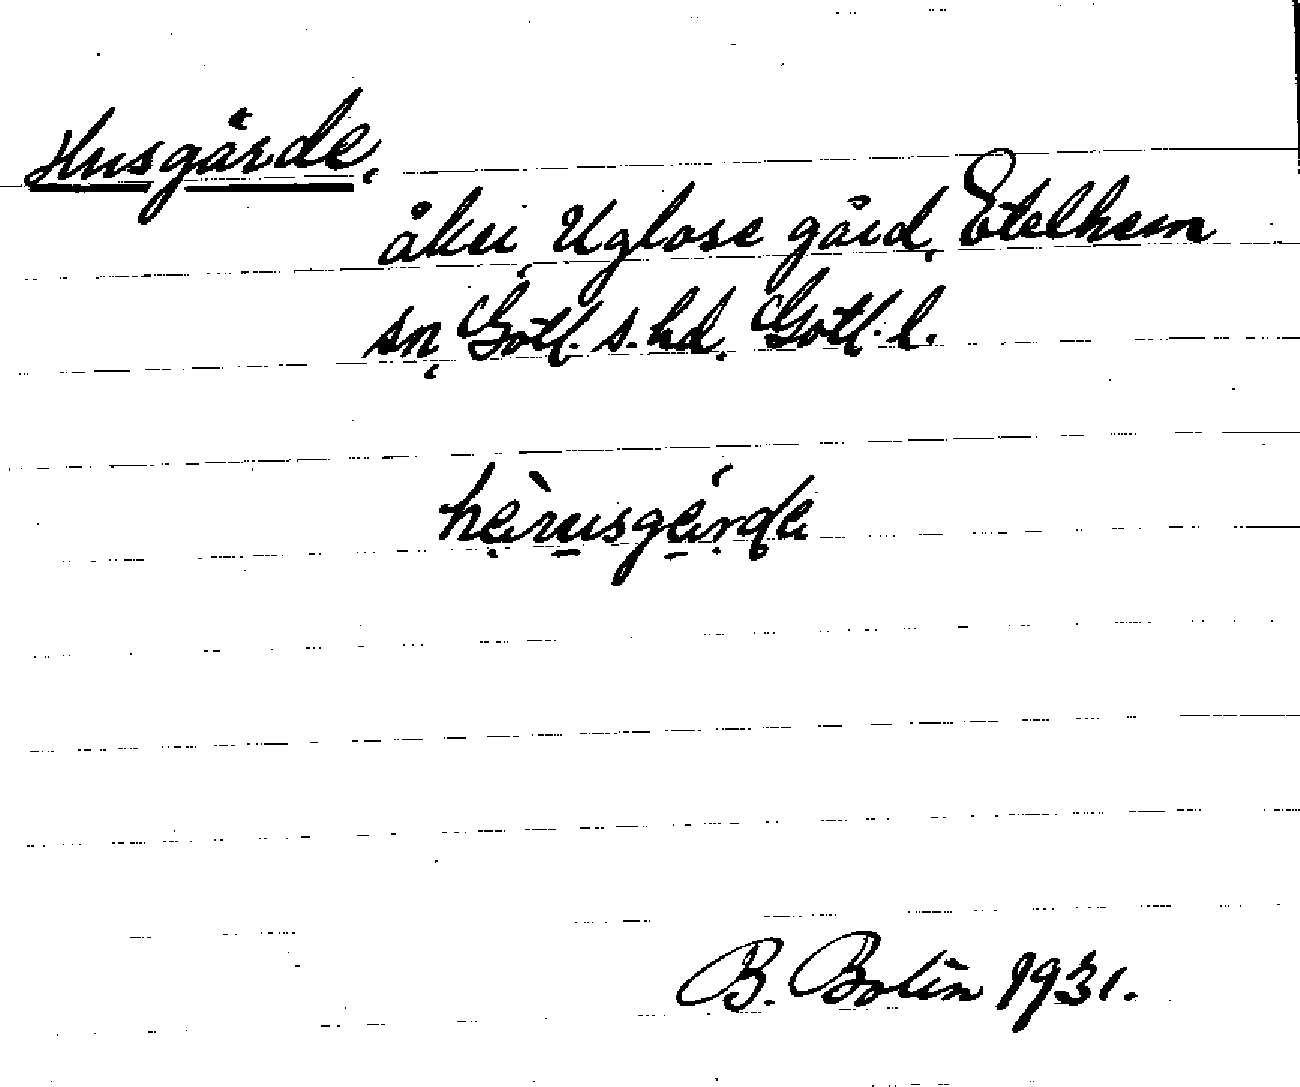 Husgärde,
åker, Uglose gård, Etelhem
sn, Gotl. s. hd. Gotl. l.
B. Bolin 1931.